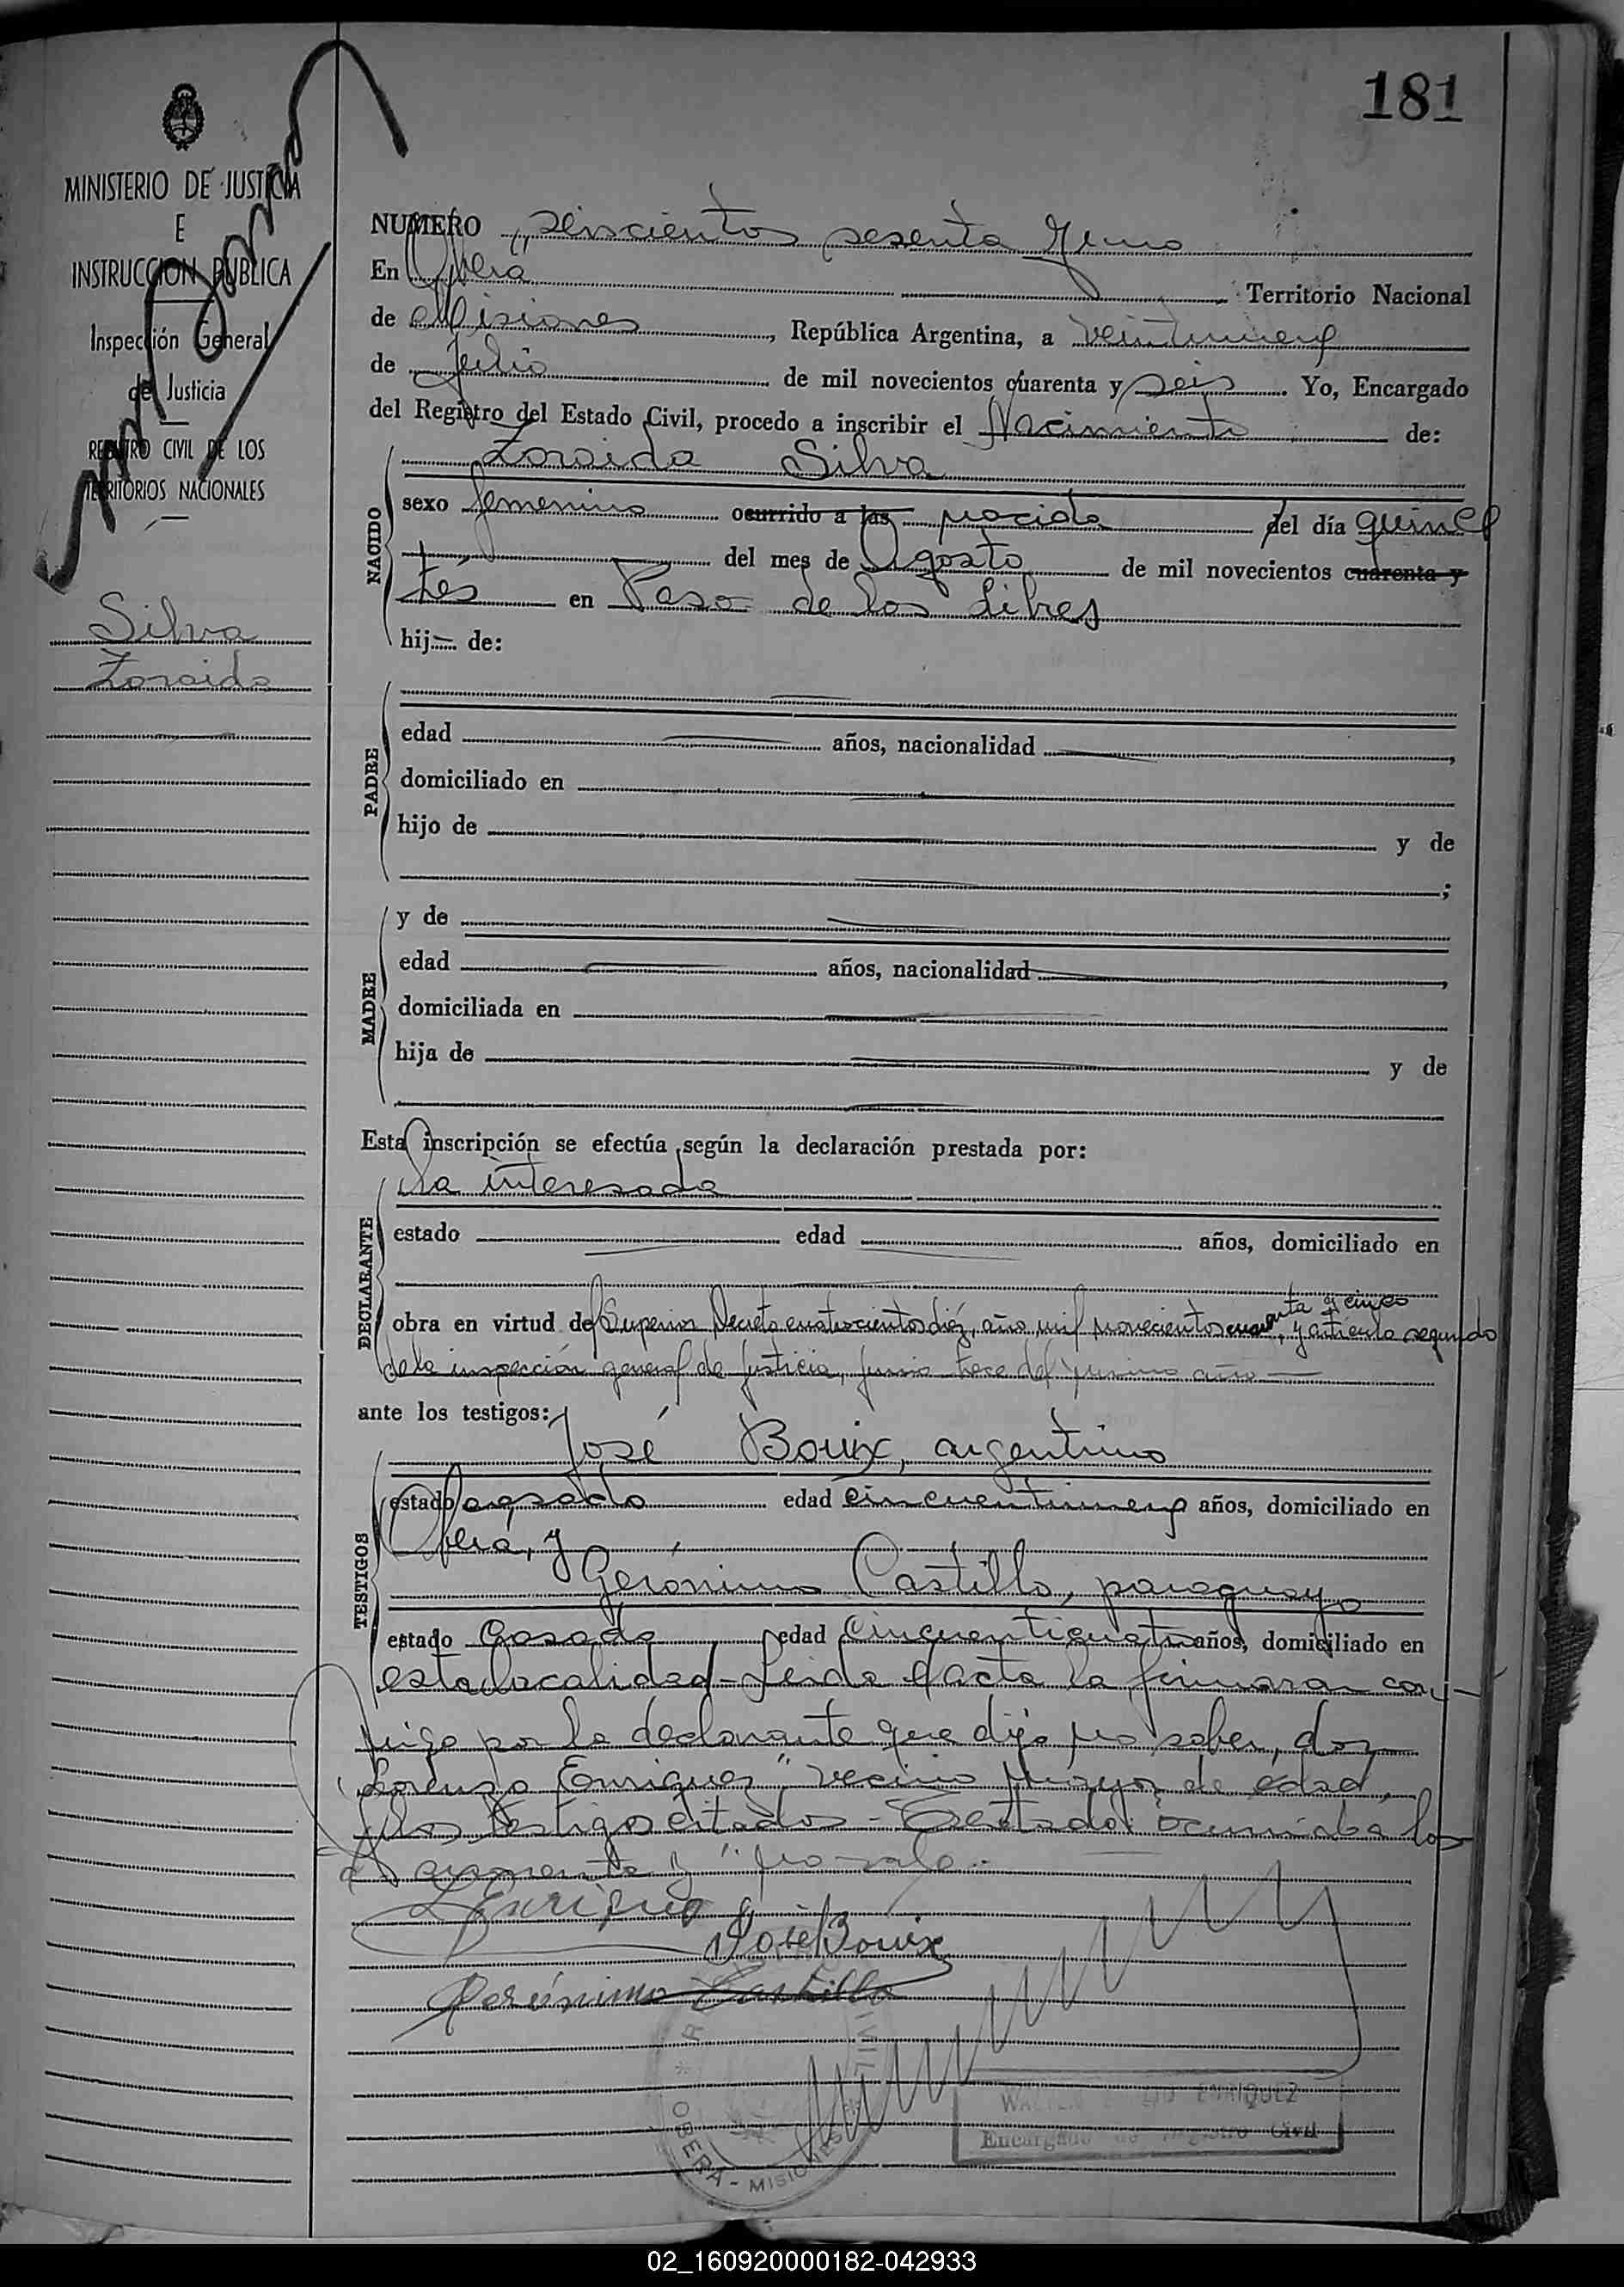 181
MINISTERIO DE JUSTICIA
E
INSTRUCCION PUBLICA
Inspección General
de Justicia
REGISTRO CIVIL DE LOS
TERRITORIOS NACIONALES
Silva
Zoraida
NUMERO seiscientos sesenta y uno
En Oberá Territorio Nacional
de Misiones, República Argentina, a veintinueve
de Julio de mil novecientos cuarenta y seis. Yo, Encargado
del Registro del Estado Civil, procedo a inscribir el Nacimiento de:
NACIDO
Zoraida Silva
sexo femenino ocurrido a las nacida del día quince
del mes de Agosto de mil novecientos cuarenta y
trés en Paso de los Libres
hij— de:
PADRE
edad años, nacionalidad ,
domiciliado en
hijo de y de
;
MADRE
y de
edad años, nacionalidad ,
domiciliada en
hija de y de
Esta inscripción se efectúa según la declaración prestada por:
DECLARANTE
la interesada
estado edad años, domiciliado en
obra en virtud del Superior Decreto cuatrocientos diéz, año mil novecientos cuarenta y cinco, y artículo segundo
de la inspección general de Justicia, Junio trece del mismo año —
ante los testigos:
TESTIGOS
José Bouix, argentino
estado casado edad cincuentinueve años, domiciliado en
Oberá, y
Gerónimo Castillo, paraguayo
estado Casado edad Cincuenticuatro años, domiciliado en
esta localidad - Leida el acta la firmaran con-
migo por la declarante que dijo no saber, don
"Lorenzo Enriquez" vecino mayor de edad,
y los testigos citados - Testado: ocurrido a las
cuarenta y "no vale.-
LEnriquez
José Bouix
Gerónimo Castillo
OBERÁ - MISIONES
ENRIQUEZ
Encargado de Registro Civil
02_160920000182-042933